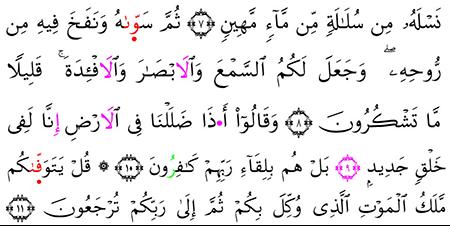 نَسْلَهُۥ مِن سُلَٰلَةٖ مِّن مَّآءٖ مَّهِينٖ ٧ ثُمَّ سَوّ۪ىٰهُ وَنَفَخَ فِيهِ مِن
رُّوحِهِۦۖ وَجَعَلَ لَكُمُ اُ۬لسَّمْعَ وَالَابْصَٰرَ وَالَافْـِٕدَةَۚ قَلِيلاٗ
مَّا تَشْكُرُونَۖ ٨ وَقَالُوٓاْ أَ۟ذَا ضَلَلْنَا فِے اِ۬لَارْضِ إِنَّا لَفِے
خَلْقٖ جَدِيدِۢ ٩ بَلْ هُم بِلِقَآءِ رَبِّهِمْ كَٰفِرُونَۖ ١٠ ۞ قُلْ يَتَوَفّ۪ىٰكُم
مَّلَكُ اُ۬لْمَوْتِ اِ۬لذِے وُكِّلَ بِكُمْ ثُمَّ إِلَىٰ رَبِّكُمْ تُرْجَعُونَۖ ١١